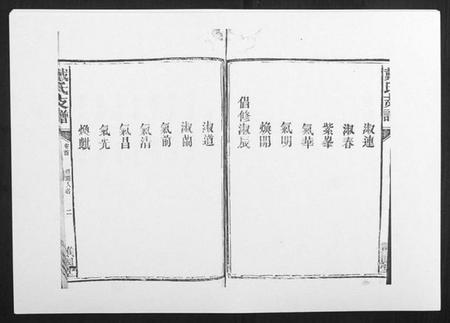 淑連
淑春
紫峯
氣華
氣明
煥開
倡修淑辰
淑道
淑蘭
氣前
氣清
氣昌
氣光
煥
戴氏支譜
卷首
二
戴氏支譜